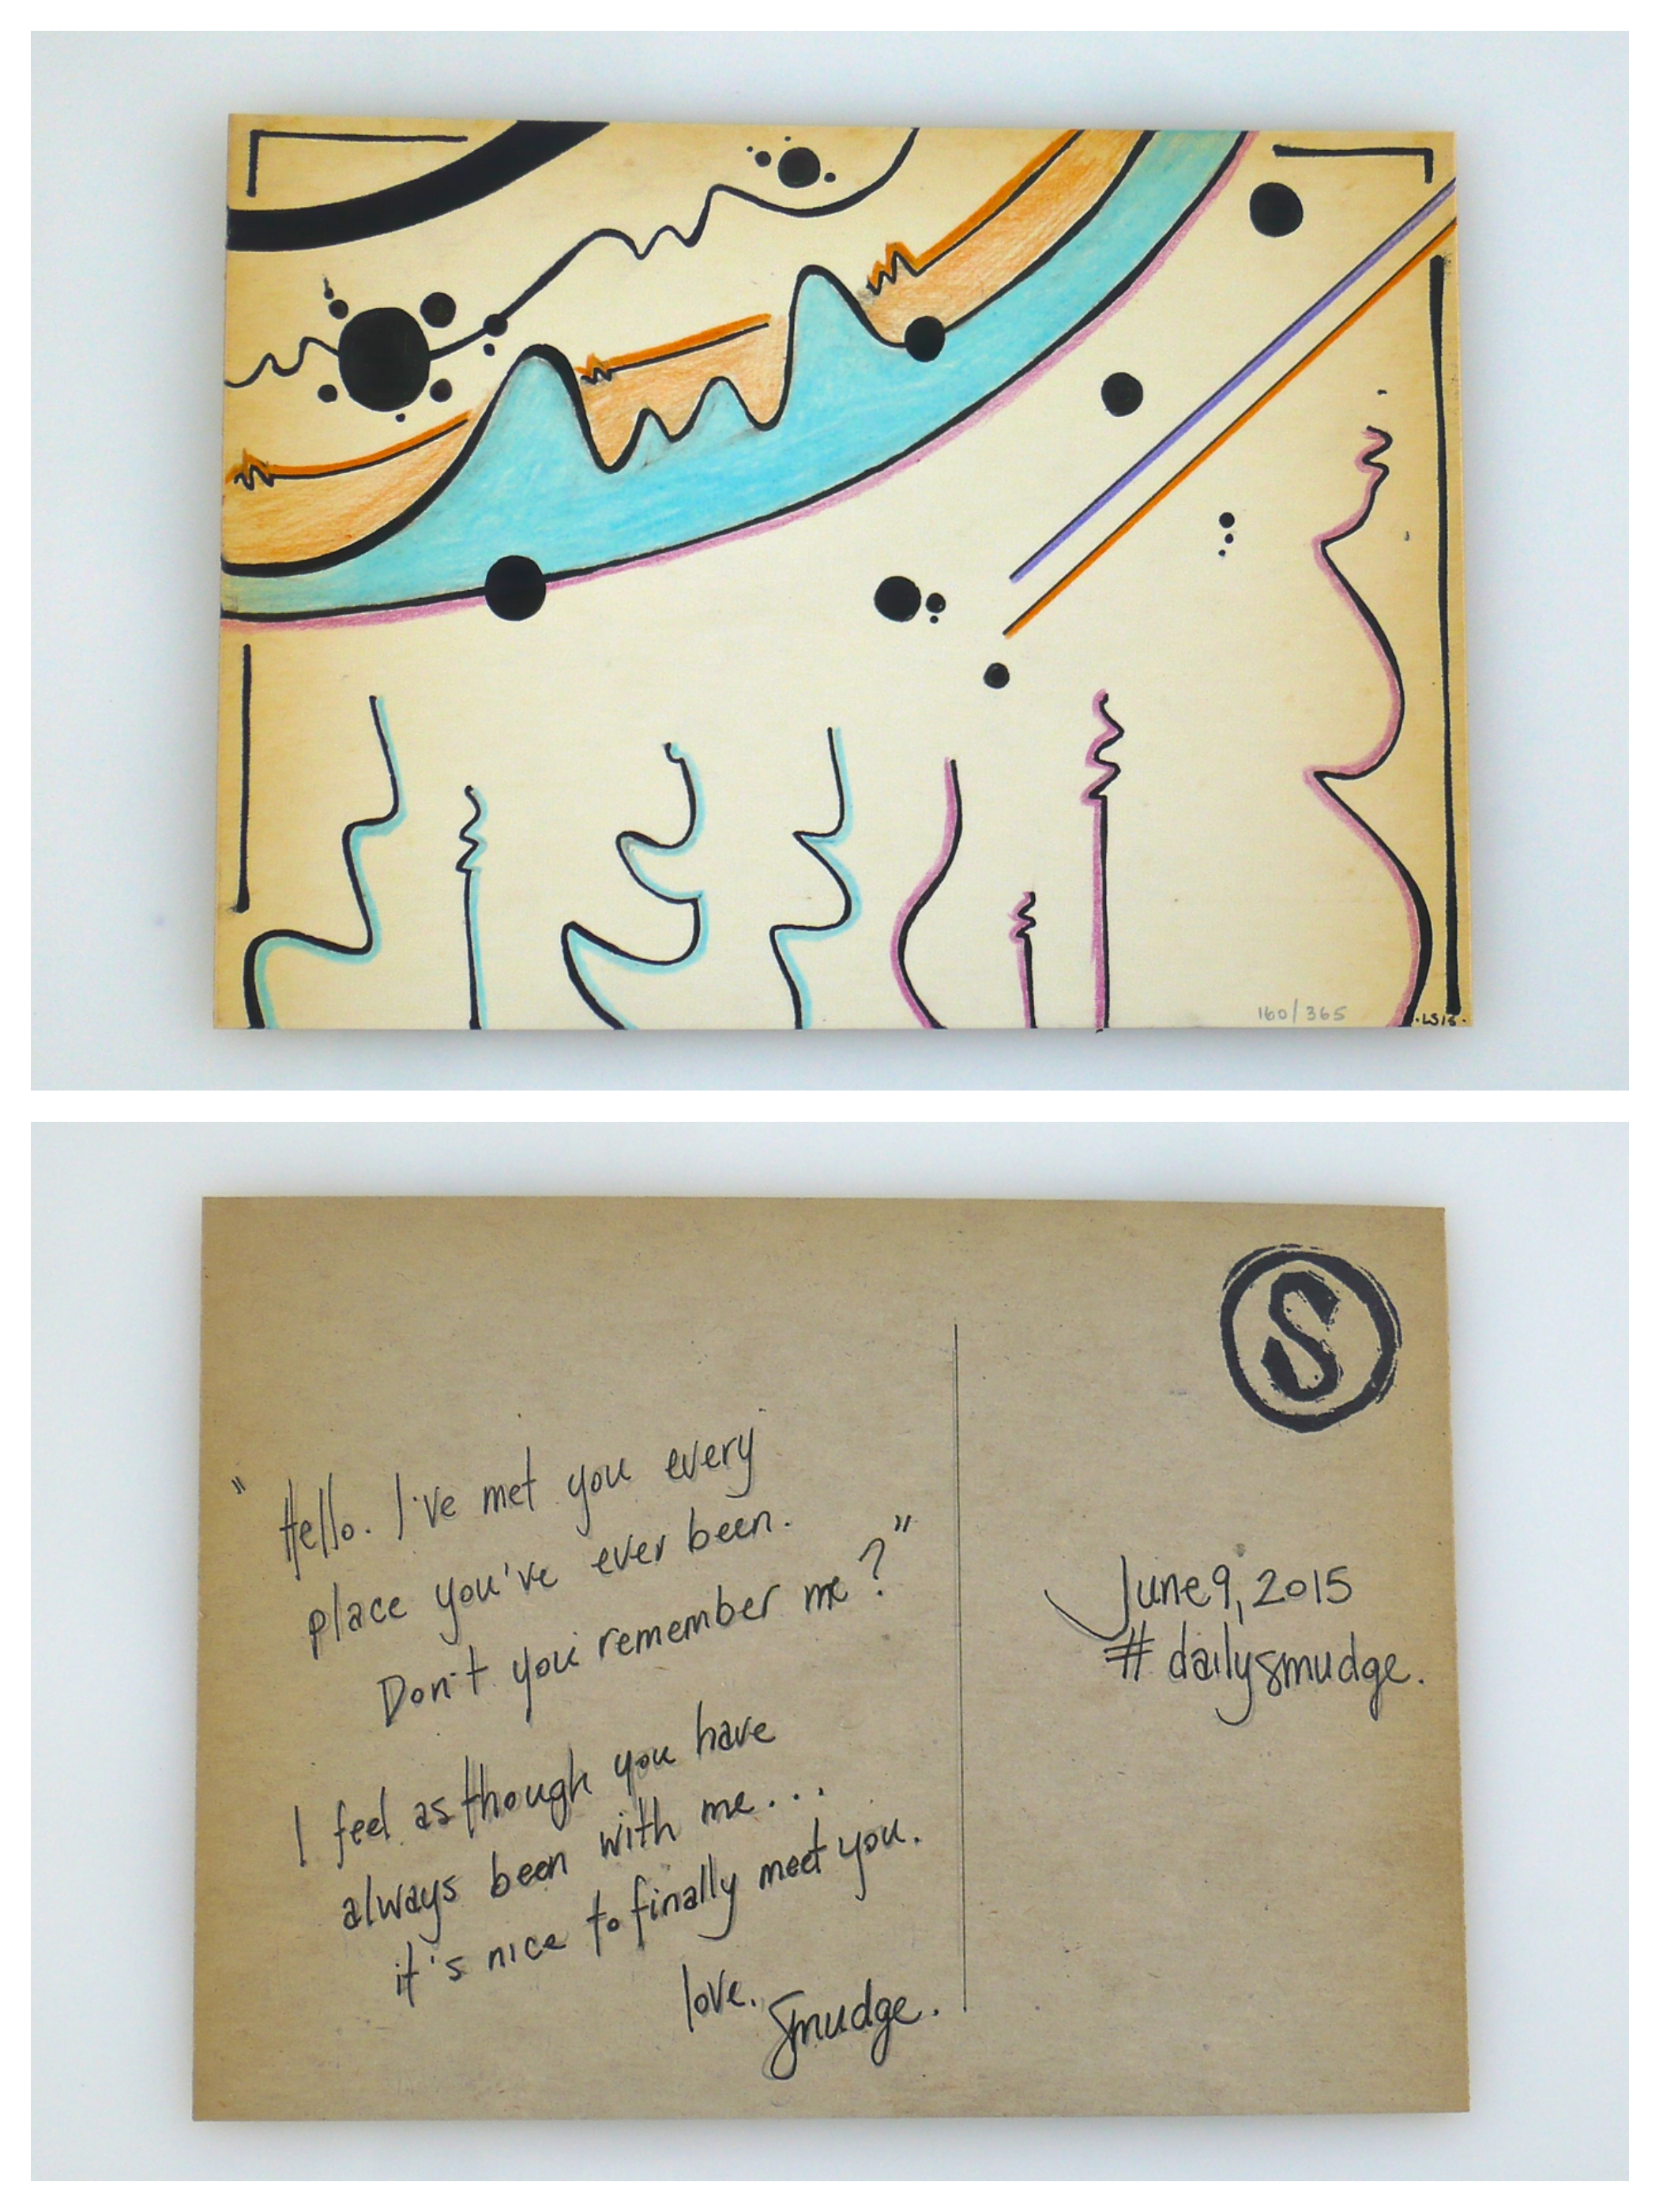 160/365
·LS15·
S
" Hello. I've met you every
place you've ever been.
Don't you remember me?"
I feel as though you have
always been with me...
it's nice to finally meet you.
love.
Smudge.
June 9, 2015
#dailysmudge.